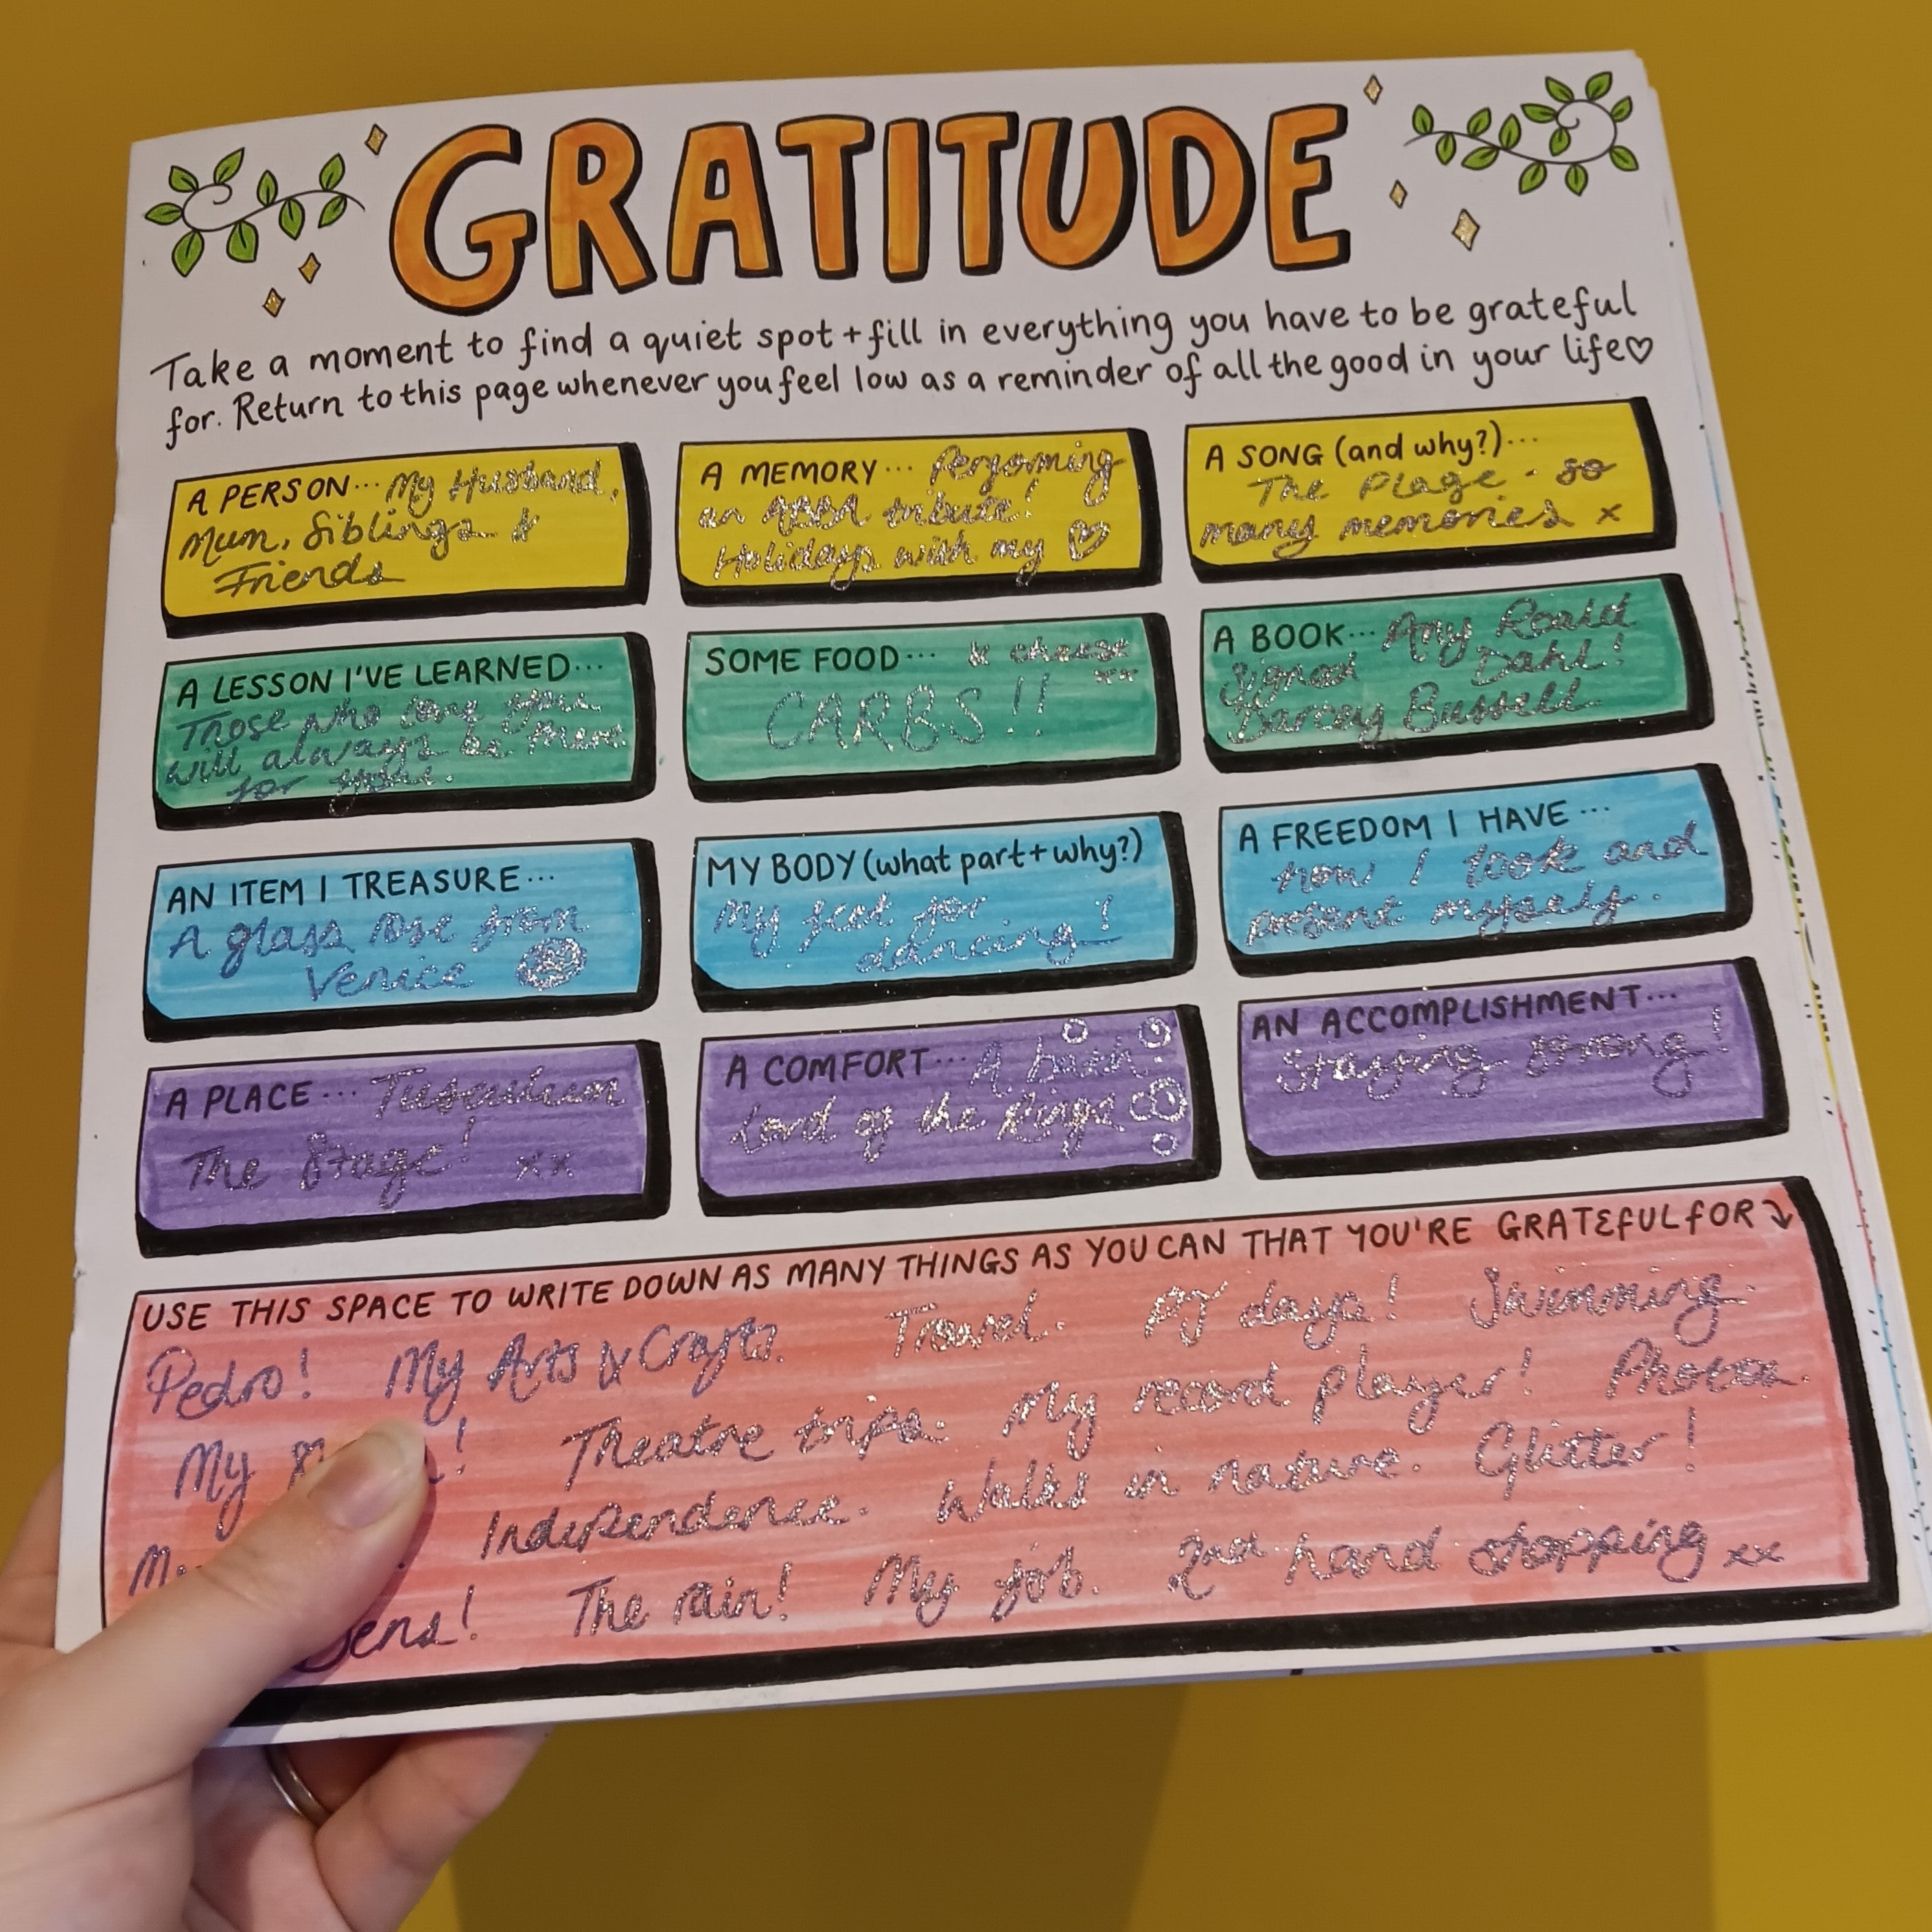 GRATITUDE
Take a moment to find a quiet spot + fill in everything you have to be grateful
for. Return to this page whenever you feel low as a reminder of all the good in your life♡
A PERSON... My Husband,
Mum, Siblings &
Friends
A MEMORY... Performing
an ABBA tribute!
Holidays with my ♡
A SONG (and why?)...
The Plage - so
many memories x
A LESSON I'VE LEARNED...
Those who love you
will always be there
for you.
SOME FOOD... & cheese
xx
CARBS!!
A BOOK... Any Roald
Dahl!
Signed
Darcey Bussell.
AN ITEM I TREASURE...
A glass rose from
Venice
MY BODY (what part + why?)
My feet for
dancing!
A FREEDOM I HAVE...
how I look and
present myself.
A PLACE... Tusculum
The Stage! xx
A COMFORT... A bath!
Lord of the Rings
AN ACCOMPLISHMENT...
Staying strong!
USE THIS SPACE TO WRITE DOWN AS MANY THINGS AS YOU CAN THAT YOU'RE GRATEFUL FOR
Pedro! My Arts & Crafts. Travel. PJ days! Swimming.
My Theatre trips. My record player! Photos.
Independence. Walks in nature. Glitter!
The rain! My job. 2nd hand shopping xx